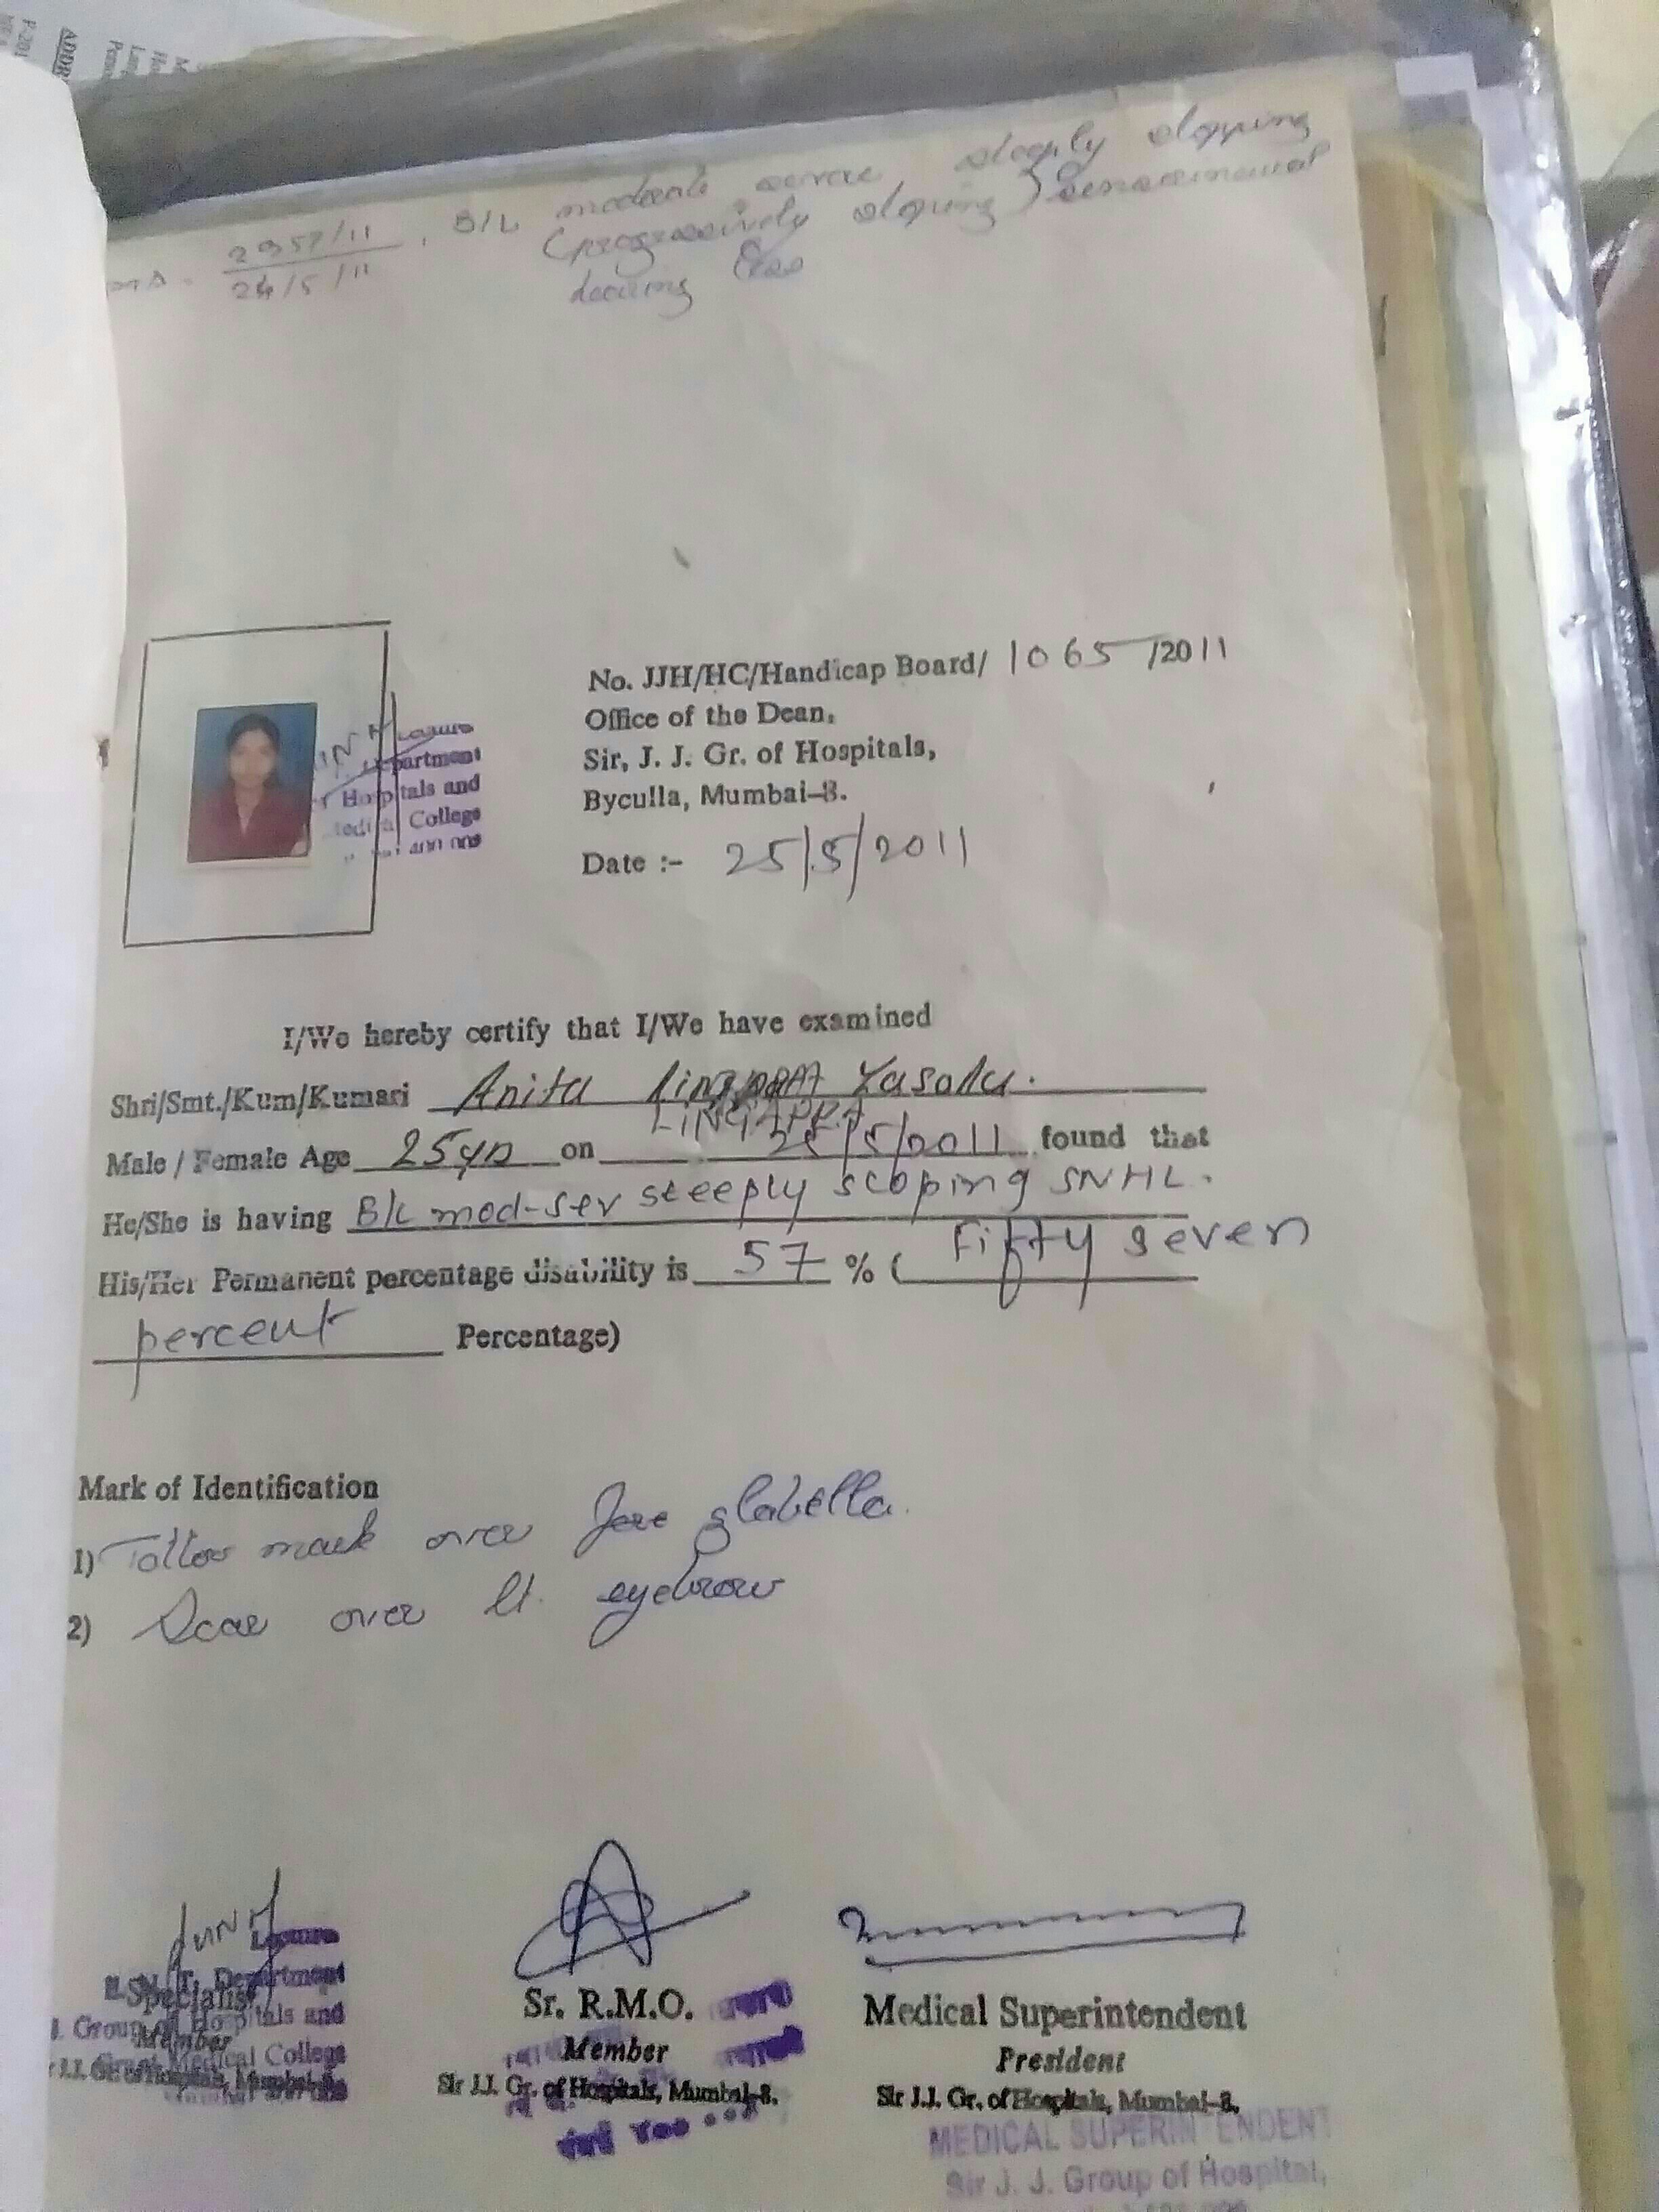 ADDR
2957/11
24/5/11
B/L moderate severe steeply slopping
(progressively sloping) Sensorineural
hearing loss
No. JJH/HC/Handicap Board/ 1065 /2011
Office of the Dean,
Sir, J. J. Gr. of Hospitals,
Byculla, Mumbai-8.
Date :- 25/5/2011
Lecturer
Department
Hospitals and
College
I/We hereby certify that I/We have examined
Shri/Smt./Kum/Kumari Anita
LINGAPPA
Male / Female Age 25 yrs on 25/5/2011 found that
He/She is having B/L mod-sev steeply scoping SNHL.
His/Her Permanent percentage disability is 57 % ( Fifty seven
percent Percentage)
Mark of Identification
1) Tattoo mark over glabella.
2) Scar over lt. eyebrow
Lecturer
E. N. T. Department
Specialist
J. Group of Hospitals and
Member
Grant Medical College
J.J. Gr. of Hospitals, Mumbai-8.
Sr. R.M.O.
Member
Sir J.J. Gr. of Hospitals, Mumbai-8.
मुंबई ४००
Medical Superintendent
President
Sir J.J. Gr. of Hospitals, Mumbai-8.
MEDICAL SUPERINTENDENT
Sir J. J. Group of Hospital,